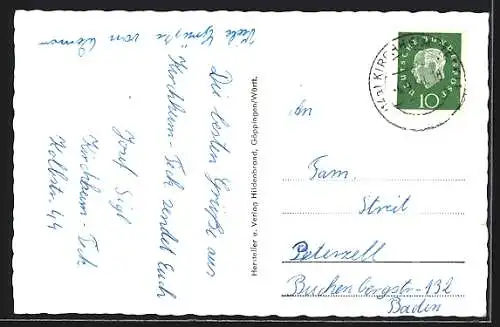 Viele Grüße von
Die besten Grüße aus
Kirchheim-Teck sendet Euch
Josef Sigl
Kirchheim-Teck
Kolbstr. 44
Hersteller u. Verlag Hildenbrand, Göppingen/Württ.
KIRCHH
DEUTSCHE BUNDESPOST
10
An
Fam.
Streit
Peterzell
Buchenbergstr-132
Baden